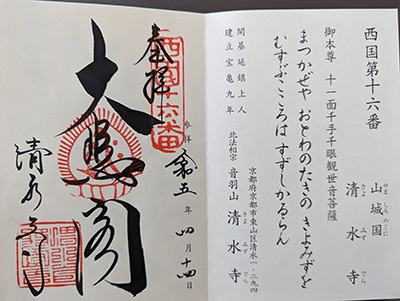 西国第十六番
山城国
やましろのくに
清水寺
きよみずでら
御本尊 十一面千手千眼観世音菩薩
まつかぜや おとわのたきの きよみずを
むすぶこころは すずしかるらん
開基 延鎮上人
建立 宝亀九年
京都府京都市東山区清水一-二九四
北法相宗 音羽山 清水寺
きよみずでら
西国十六番
奉拝
参拝 令和五年 四月 十四日
大悲閣
清水寺